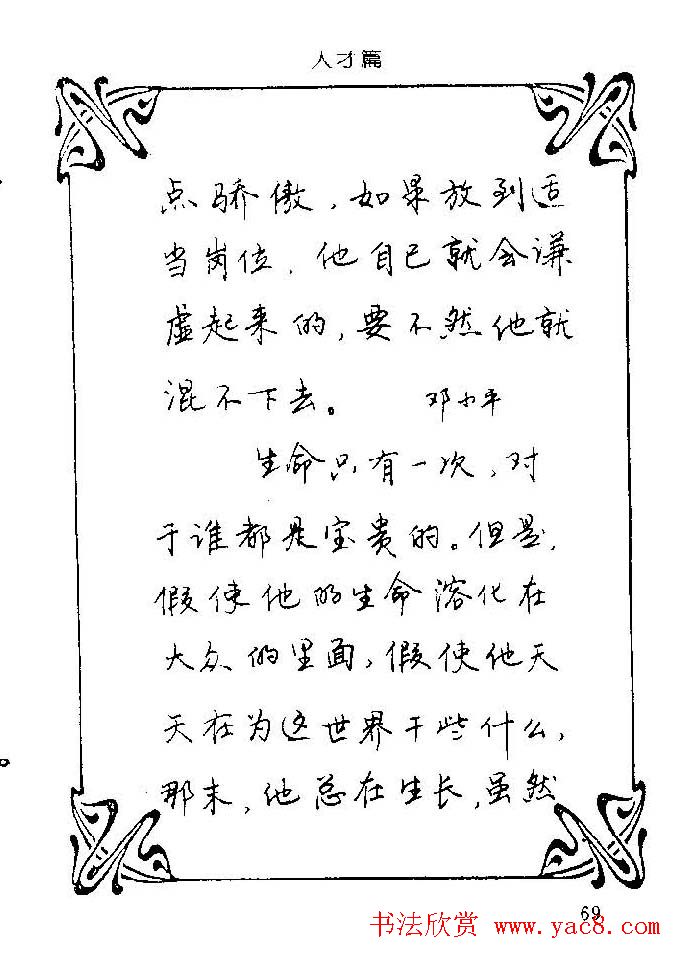 人才篇
点骄傲，如果放到适
当岗位，他自己就会谦
虚起来的，要不然他就
混不下去。 邓小平
生命只有一次，对
于谁都是宝贵的。但是，
假使他的生命溶化在
大众的里面，假使他天
天在为这世界干些什么，
那末，他总在生长，虽然
69
书法欣赏 www.yac8.com